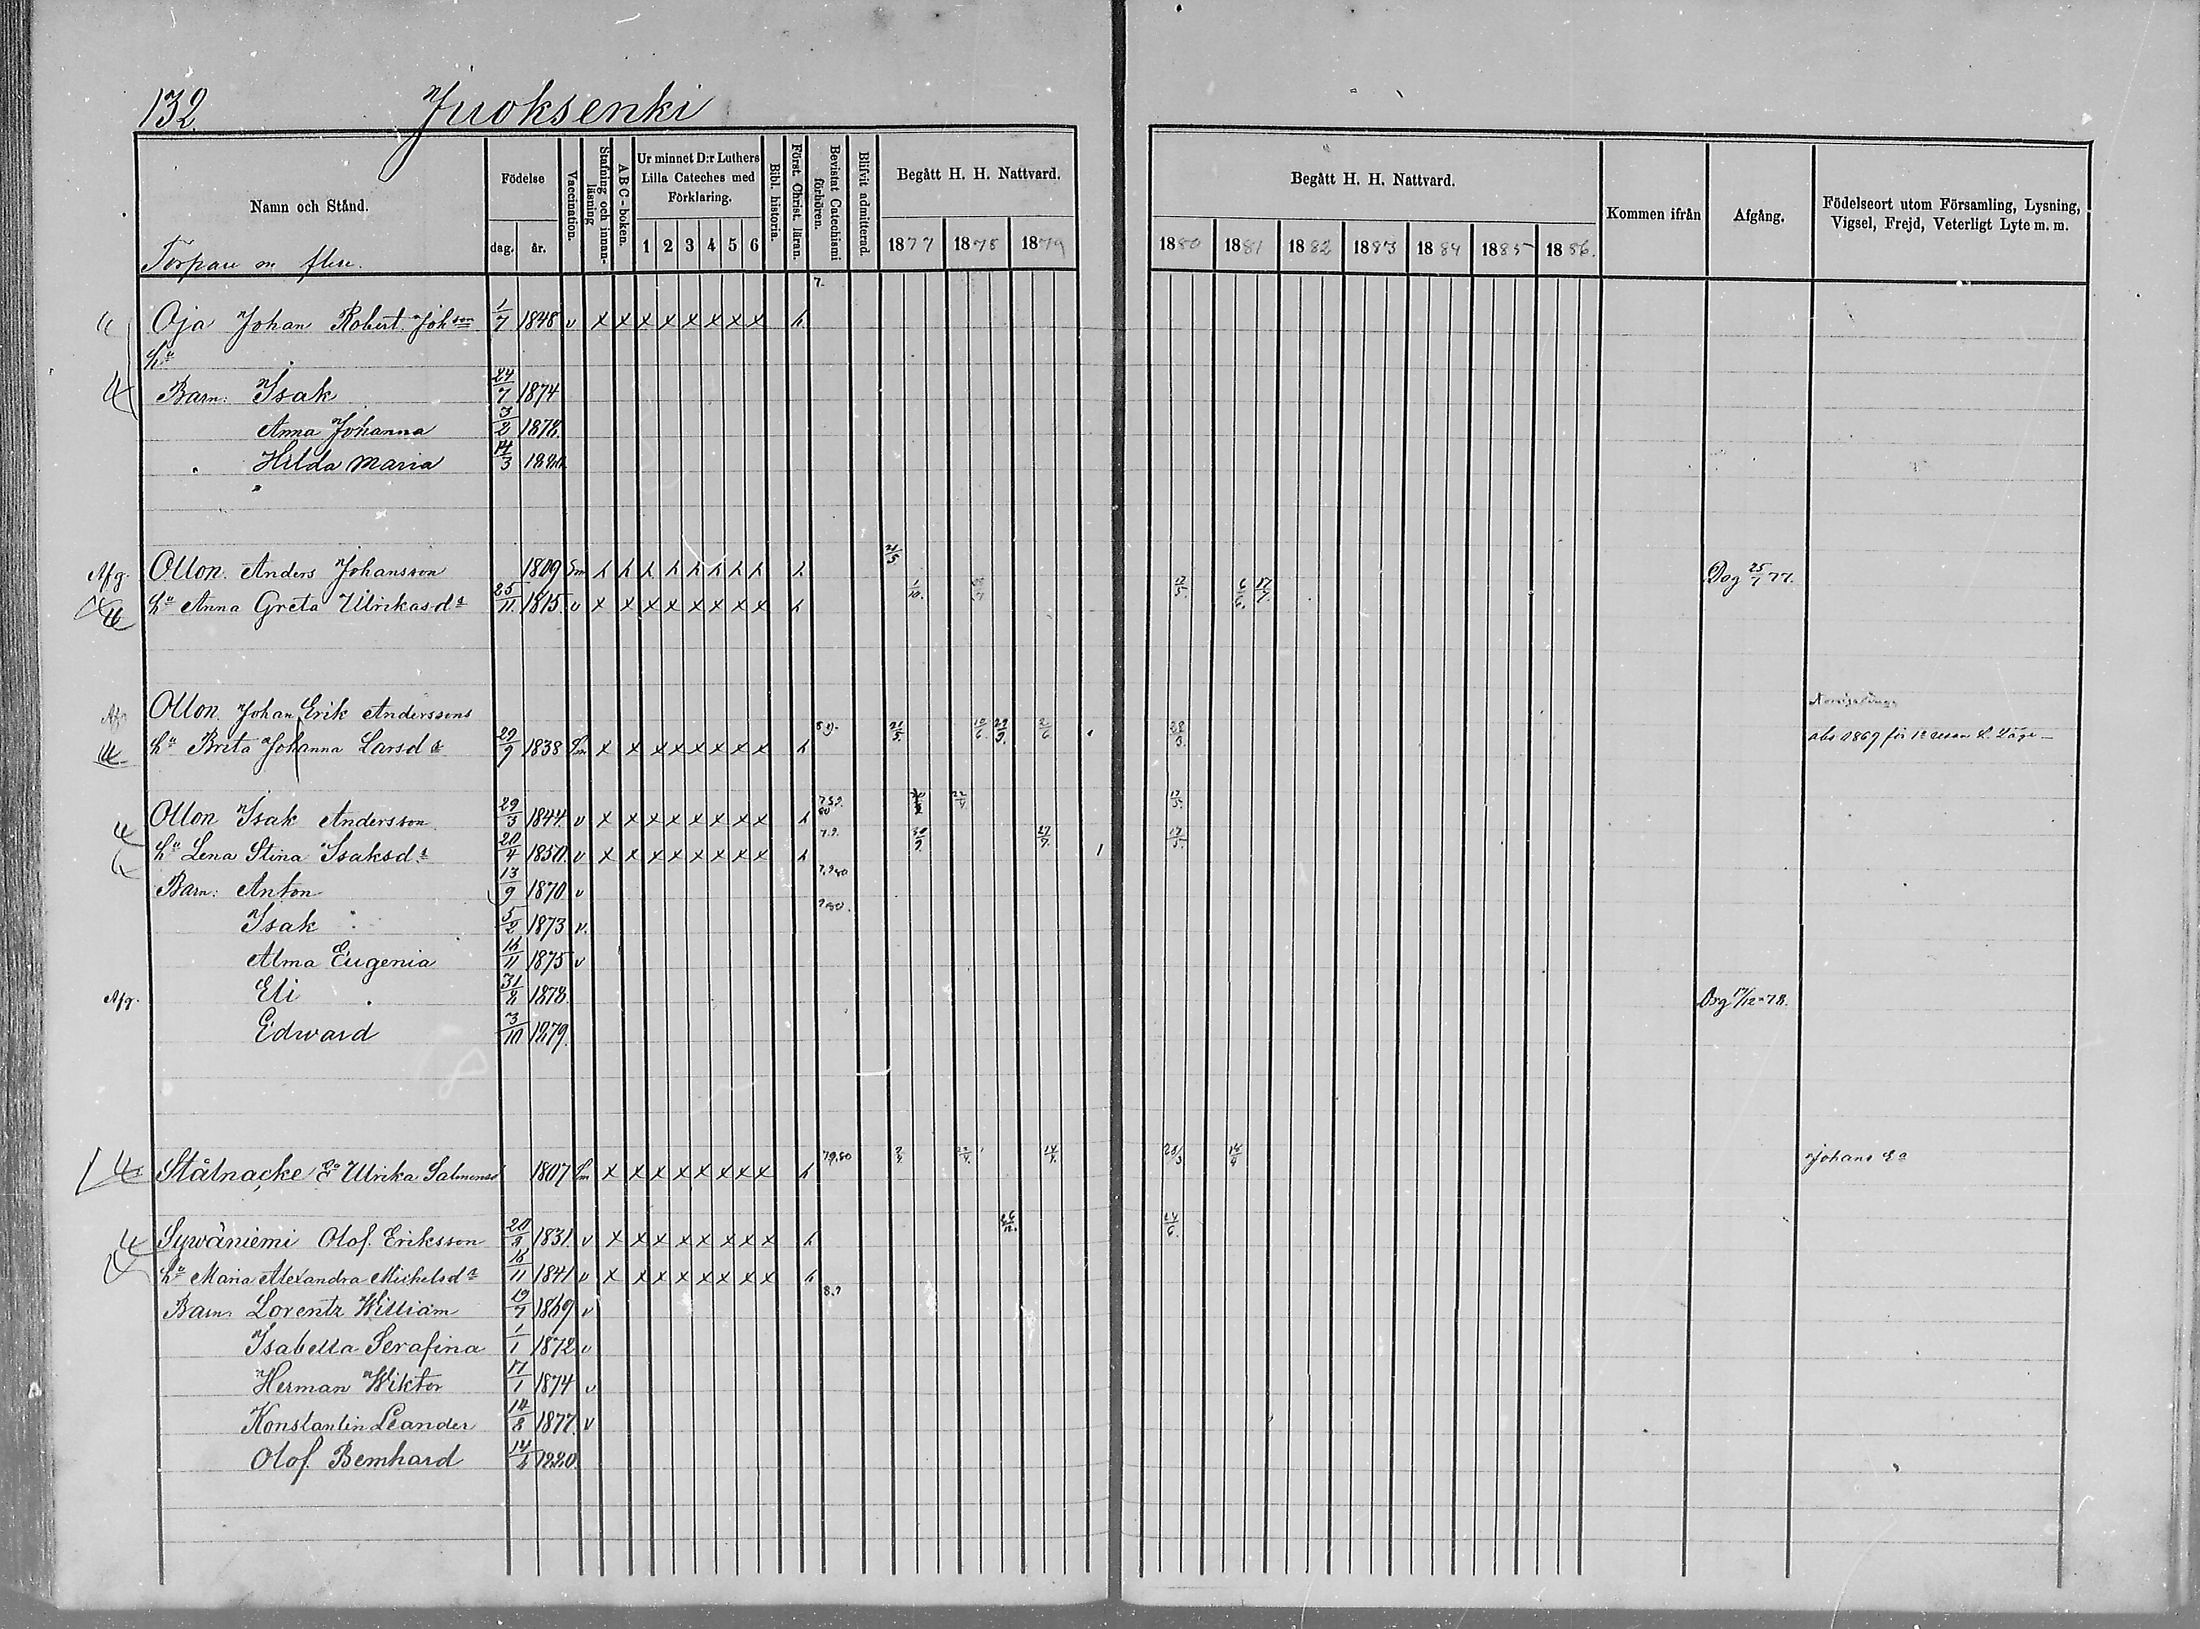 132. Juoksenki
Namn och Stånd.
Torpare m flere.
Födelse
dag. år.
Vaccination.
Stafning och innan-läsning
A B C - boken.
Ur minnet D:r Luthers Lilla Cateches med Förklaring.
1 2 3 4 5 6
Bibl. historia.
Först. Christ. läran.
Bevistat Catechismi förhören.
Blifvit admitterad.
Begått H. H. Nattvard.
1877 1878 1879
Begått H. H. Nattvard.
1880 1881 1882 1883 1884 1885 1886.
Kommen ifrån
Afgång.
Födelseort utom Församling, Lysning, Vigsel, Frejd, Veterligt Lyte m. m.
7.
Oja Johan Robert Johson 1/7 1848 v x x x x x x x x h
h:u
Barn: Isak 24/7 1874
Anna Johanna 3/2 1878
Hilda Maria 14/3 1880
Afg. Ollon. Anders Johansson 1809 Sm h h h h h h h h h 21/5 Dog 25/7 77.
h:u Anna Greta Ulrikasd:r 25/11 1815. v x x x x x x x x h 1/10. 17/5. 6/6. 17/7.
Afg. Ollon. Johan Erik Anderssons
h:u Brita Johanna Larsd:r 29/9 1838 Sm x x x x x x x x h 8.9. 21/5. 10/6. 29/9. 2/6 28/3. abs 1869 för 1:a resan L. Läge
Ollon Isak Andersson 29/3 1844. v x x x x x x x x h 7.8.9. 80 22/4. 17/5.
h:u Lena Stina Isaksd:r 20/4 1850. v x x x x x x x x h 7.9. 30/9. 27/7. 17/5.
Barn: Anton 13/9 1870 v 7.9 80
Isak 5/2 1873 v. 80.
Alma Eugenia 16/11 1875 v
Afg. Eli 31/8 1878. Dog 17/12 78.
Edward 3/10 1879.
Stålnacke E:a Ulrika Salmonsd 1807 Sm x x x x x x x x h 79.80 22/4. 14/4. 28/3 18/4 Johans E:a
Sywäniemi Olof. Eriksson 20/9 1831. v x x x x x x x x h 26/12. 24/6.
h:u Maria Alexandra Michelsd:r 16/11 1841 v x x x x x x x x h
Barn. Lorentz William 19/7 1869 v 8.9
Isabella Serafina 1/1 1872 v
Herman Wiktor 17/1 1874 v
Konstantin Leander 14/8 1877. v
Olof. Bernhard 14/4 1880.